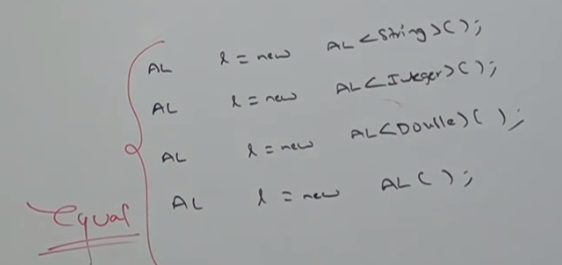 AL l = new AL<String>();
AL l = new AL<Integer>();
AL l = new AL<Double>();
AL l = new AL();
equal